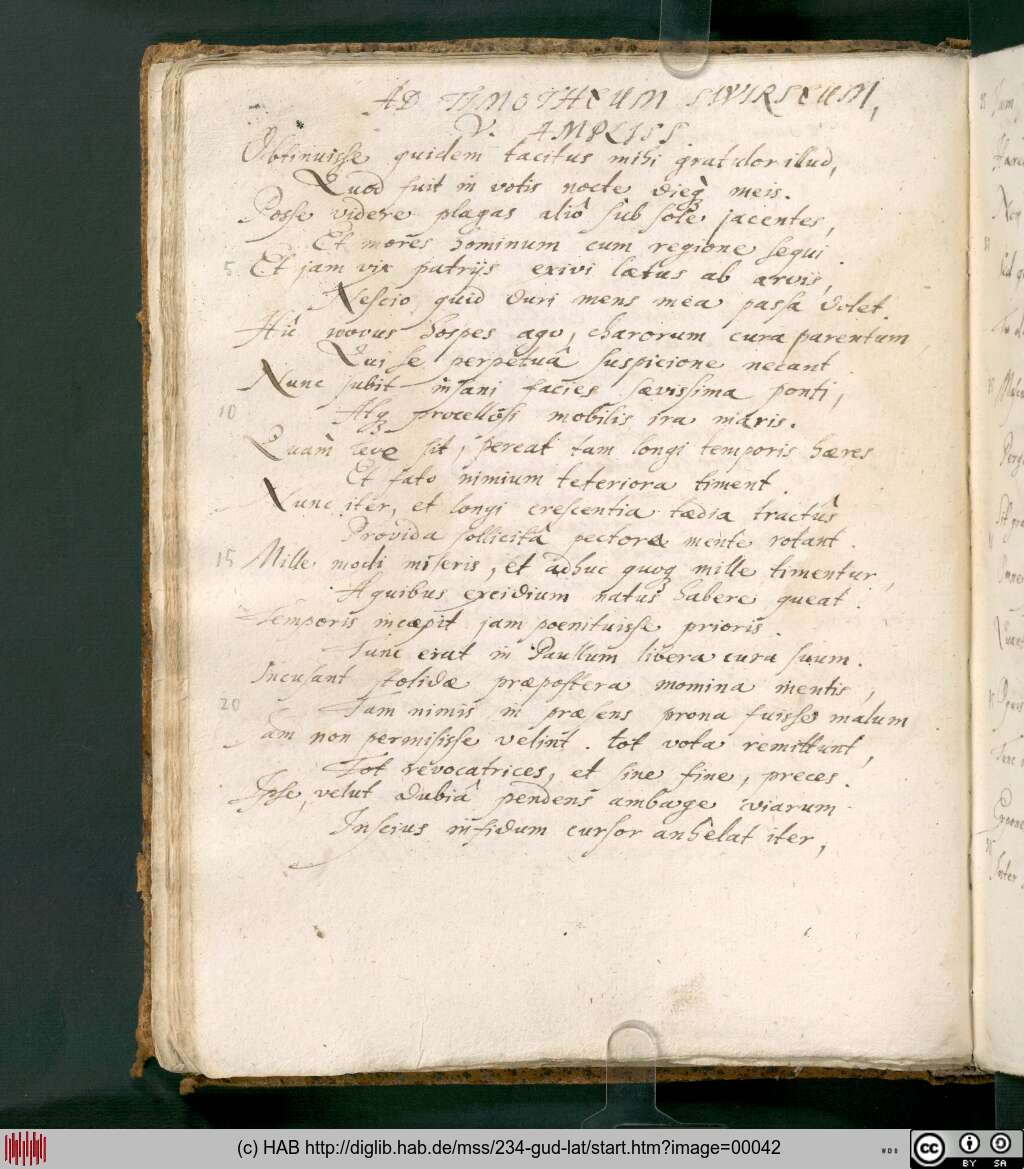 AD TIMOTHEUM SWIRSEUM,
V. AMPLISS.
Obtinuisse quidem tacitus mihi gratulor illud,
Quod fuit in votis nocte dieq₃ meis.
Posse videre plagas aliô sub sole jacentes,
Et mores hominum cum regione sequi.
5. Et jam vix patrijs exivi lætus ab arvis,
Nescio quid duri mens mea passa dolet.
Hîc novus hospes ago, charorum cura parentum,
Qui se perpetuâ suspicione necant
Nunc subit insani facies sævissima ponti,
10 Atq₃ procellosi mobilis ira maris.
Quàm leve sit, pereat tam longi temporis hæres
Et fato nimium teteriora timent.
Nunc iter, et longi crescentia tædia tractûs
Provida sollicita pectora mente rotant.
15 Mille modi miseris, et adhuc quoq₃ mille timentur,
A quibus exidium natus habere queat.
Temporis incæpit jam poenituisse prioris.
Tunc erat in Paullum libera cura suum.
Incusant stolidæ præpostera momina mentis,
20 Tam nimis in præsens prona fuisse malum
Jam non permisisse velint. tot vota remittunt,
Tot revocatrices, et sine fine, preces.
Ipse, velut dubiâ pendens ambage viarum
Inscius infidum cursor anhelat iter,
(c) HAB http://diglib.hab.de/mss/234-gud-lat/start.htm?image=00042
cc BY SA